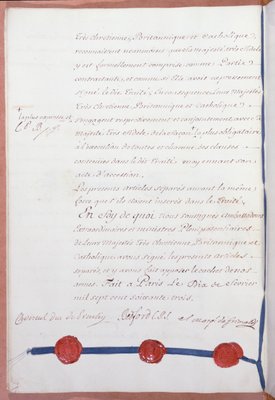 Très Chrétienne, Britannique et Catholique,
reconnoissent neanmoins que Sa Majesté très Fidele
y est formellement comprise comme Partie
contractante, et comme si Elle avoit expressement
signé le dit Traité; En consequence Leurs Majestés
Très Chretienne, Britannique et Catholique
s'engagent respectivement et conjointement avec Sa
Majesté Très Fidele, de la façon la plus obligatoire
à l'execution de toutes et chacune des clauses
contenües dans le dit Traité, moyennant son
acte d'accession.
Les presents articles separés auront la même
force que s'ils étoient inserés dans le Traité.
En Foy de quoi Nous soussignés Ambassadeurs
Extraordinaires et Ministres Plenipotentiaires
de Leurs Majestés Très Chretienne, Britannique et
Catholique avons signé les presents articles
separés, et y avons fait apposer le cachet de nos
armes. Fait à Paris le Dix de Fevrier
mil sept cent soixante trois.
Choiseul duc de Praslin Bedford C.P.S. el marq. de Grimaldi